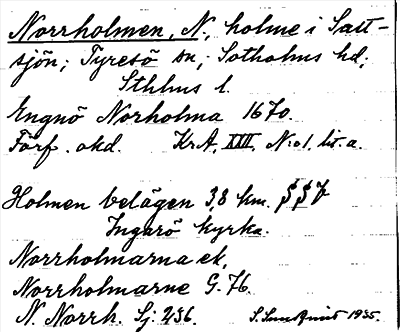 Norrholmen, N., holme i Salt-
sjön; Tyresö sn; Sotholms hd;
Sthlms l.
Engnö Norholma 1670.
Förf. okd. KrA, XXII, N:o 1. lit. a.
Holmen belägen 3,8 km. SSV
Ingarö kyrka.
Norrholmarna ek,
Norrholmarne G. 76.
N. Norrh. Sj: 236. S. 1935.